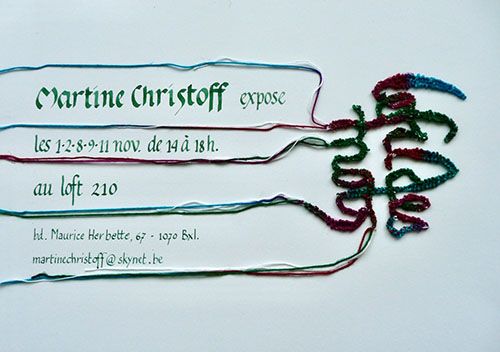 Martine Christoff expose
les 1·2·8·9·11 nov. de 14 à 18h.
au loft 210
bd. Maurice Herbette, 67 - 1070 Bxl.
martinechristoff@skynet.be